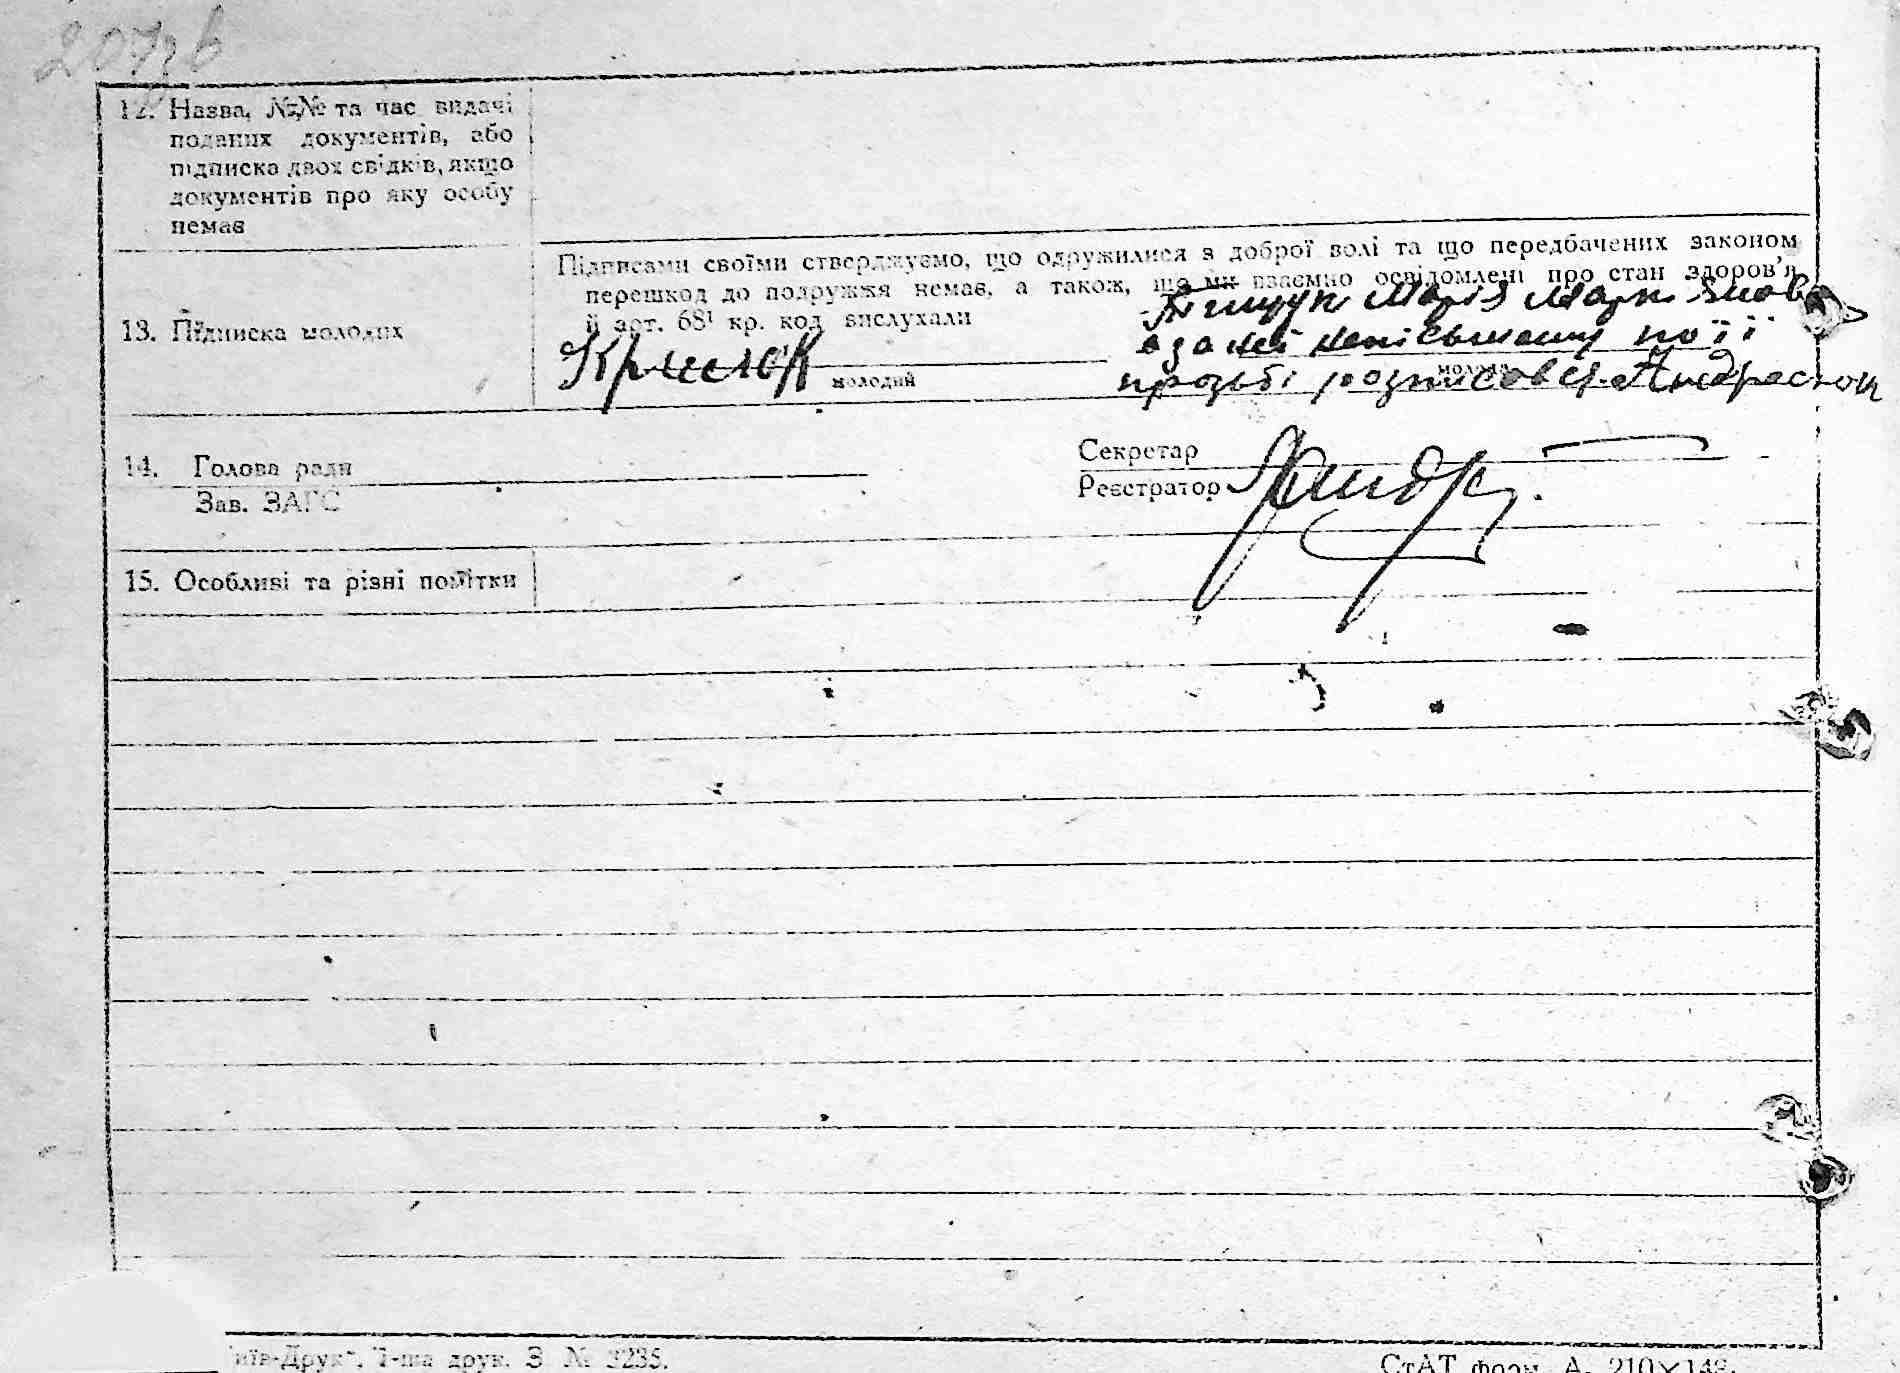 207зв
12. Назва, №№ та час видачі
поданих документів, або
підписка двох свідків, якщо
документів про яку особу
немає
13. Підписка молодих
Підписами своїми стверджуємо, що одружилися з доброї волі та що передбачених законом
перешкод до подружжя немає, а також, що ми взаємно освідомлені про стан здоров'я
й арт. 68¹ кр. код вислухали
молодий
Марія
за неї неписьменну по її
молода
прозьбі розписовся Андресюк
14. Голова ради
Зав. ЗАГС
Секретар
Реєстратор
15. Особливі та різні помітки
иїв-Друк", 1-ша друк. З № 3235.
СтАТ форм. А. 210×148.